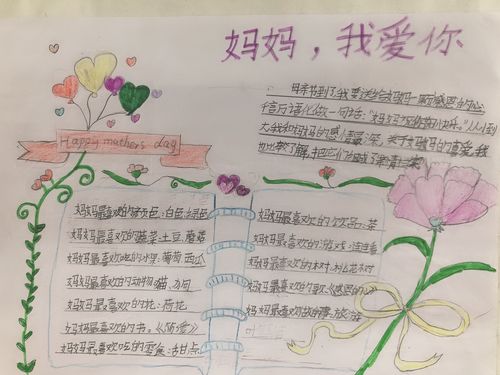 妈妈，我爱你
Happy mothers day
母亲节到了我要送给妈妈一颗感恩的心
千言万语化做一句话："妈妈 节日快乐。"从小到
大我和妈妈的感情最深，关于妈妈的喜爱，我
妈妈最喜欢的颜色：白色 绿色
妈妈最喜欢的蔬菜：土豆 蘑菇
妈妈最喜欢吃的水果：葡萄 西瓜
妈妈最喜欢的动物：猫、狗
妈妈最喜欢的花：荷花
妈妈最喜欢的书：《简爱》
妈妈最喜欢吃的零食：甜点
妈妈最喜欢的饮品：茶
妈妈最喜欢的游戏：连连看
妈妈最喜欢的树：松花树
妈妈最喜欢的歌《感恩的心》
妈妈最喜欢做的事：旅游